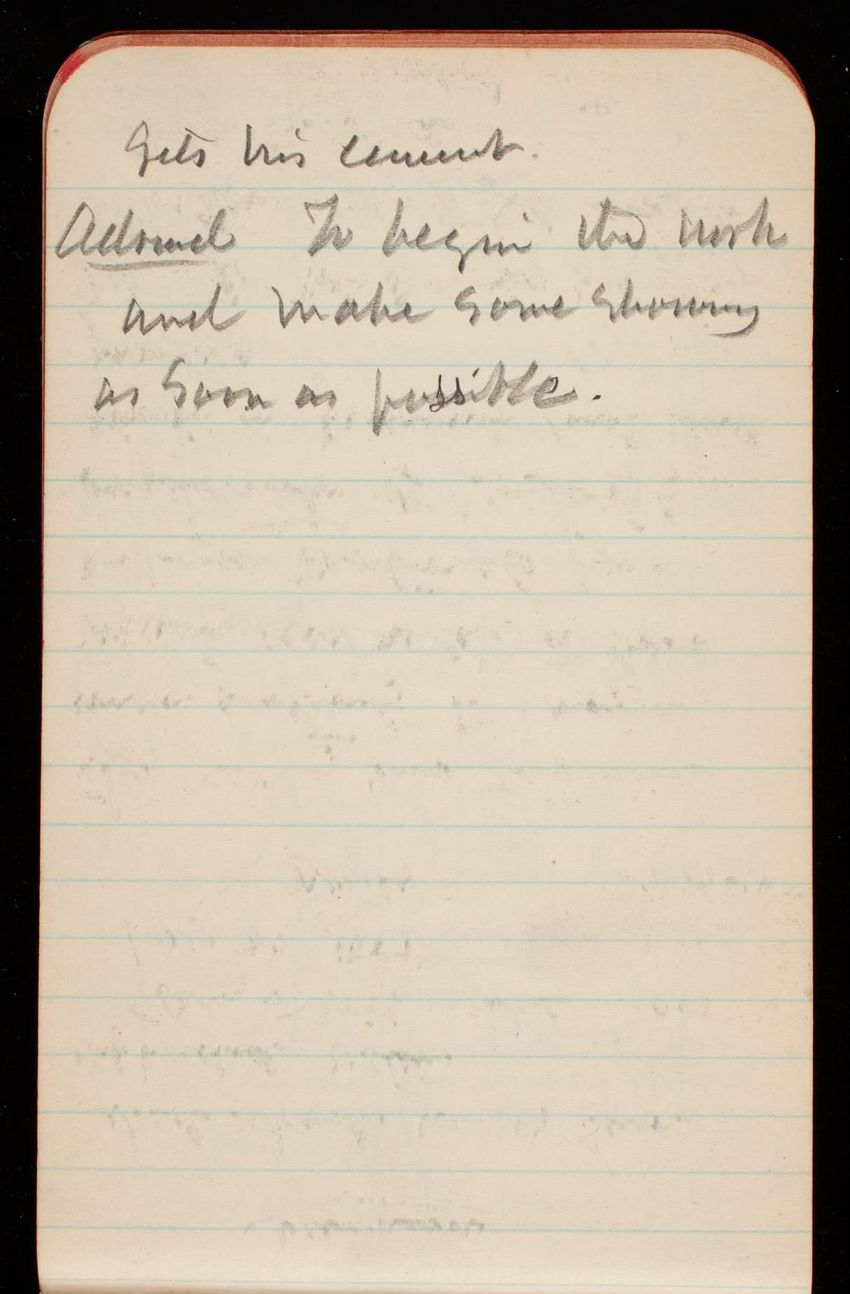 gets his cement.
Advised To begin the work
and make some showing
as soon as possible.